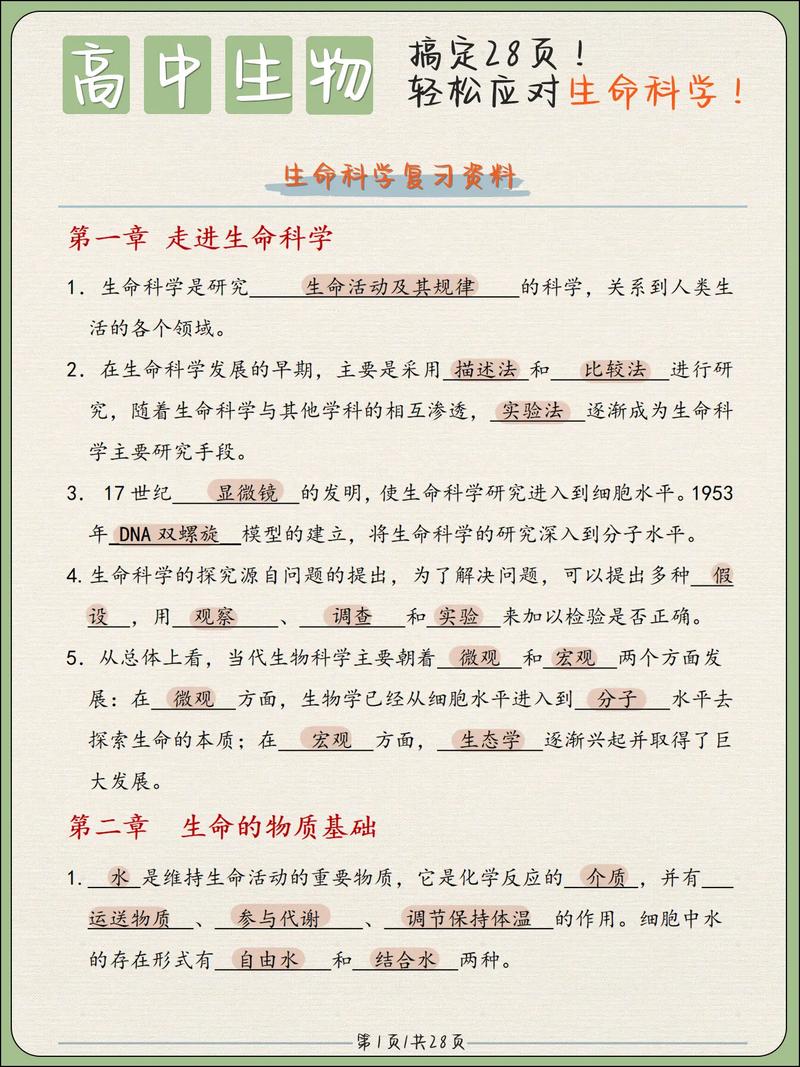 高中生物
搞定28页!
轻松应对生命科学!
生命科学复习资料
第一章 走进生命科学
1. 生命科学是研究 生命活动及其规律 的科学,关系到人类生
活的各个领域。
2. 在生命科学发展的早期,主要是采用 描述法 和 比较法 进行研
究,随着生命科学与其他学科的相互渗透, 实验法 逐渐成为生命科
学主要研究手段。
3. 17世纪 显微镜 的发明,使生命科学研究进入到细胞水平。1953
年 DNA双螺旋 模型的建立,将生命科学的研究深入到分子水平。
4. 生命科学的探究源自问题的提出,为了解决问题,可以提出多种 假
设 ,用 观察 、 调查 和 实验 来加以检验是否正确。
5. 从总体上看,当代生物科学主要朝着 微观 和 宏观 两个方面发
展:在 微观 方面,生物学已经从细胞水平进入到 分子 水平去
探索生命的本质;在 宏观 方面, 生态学 逐渐兴起并取得了巨
大发展。
第二章 生命的物质基础
1. 水 是维持生命活动的重要物质,它是化学反应的 介质 ,并有
运送物质 、 参与代谢 、 调节保持体温 的作用。细胞中水
的存在形式有 自由水 和 结合水 两种。
第1页/共28页